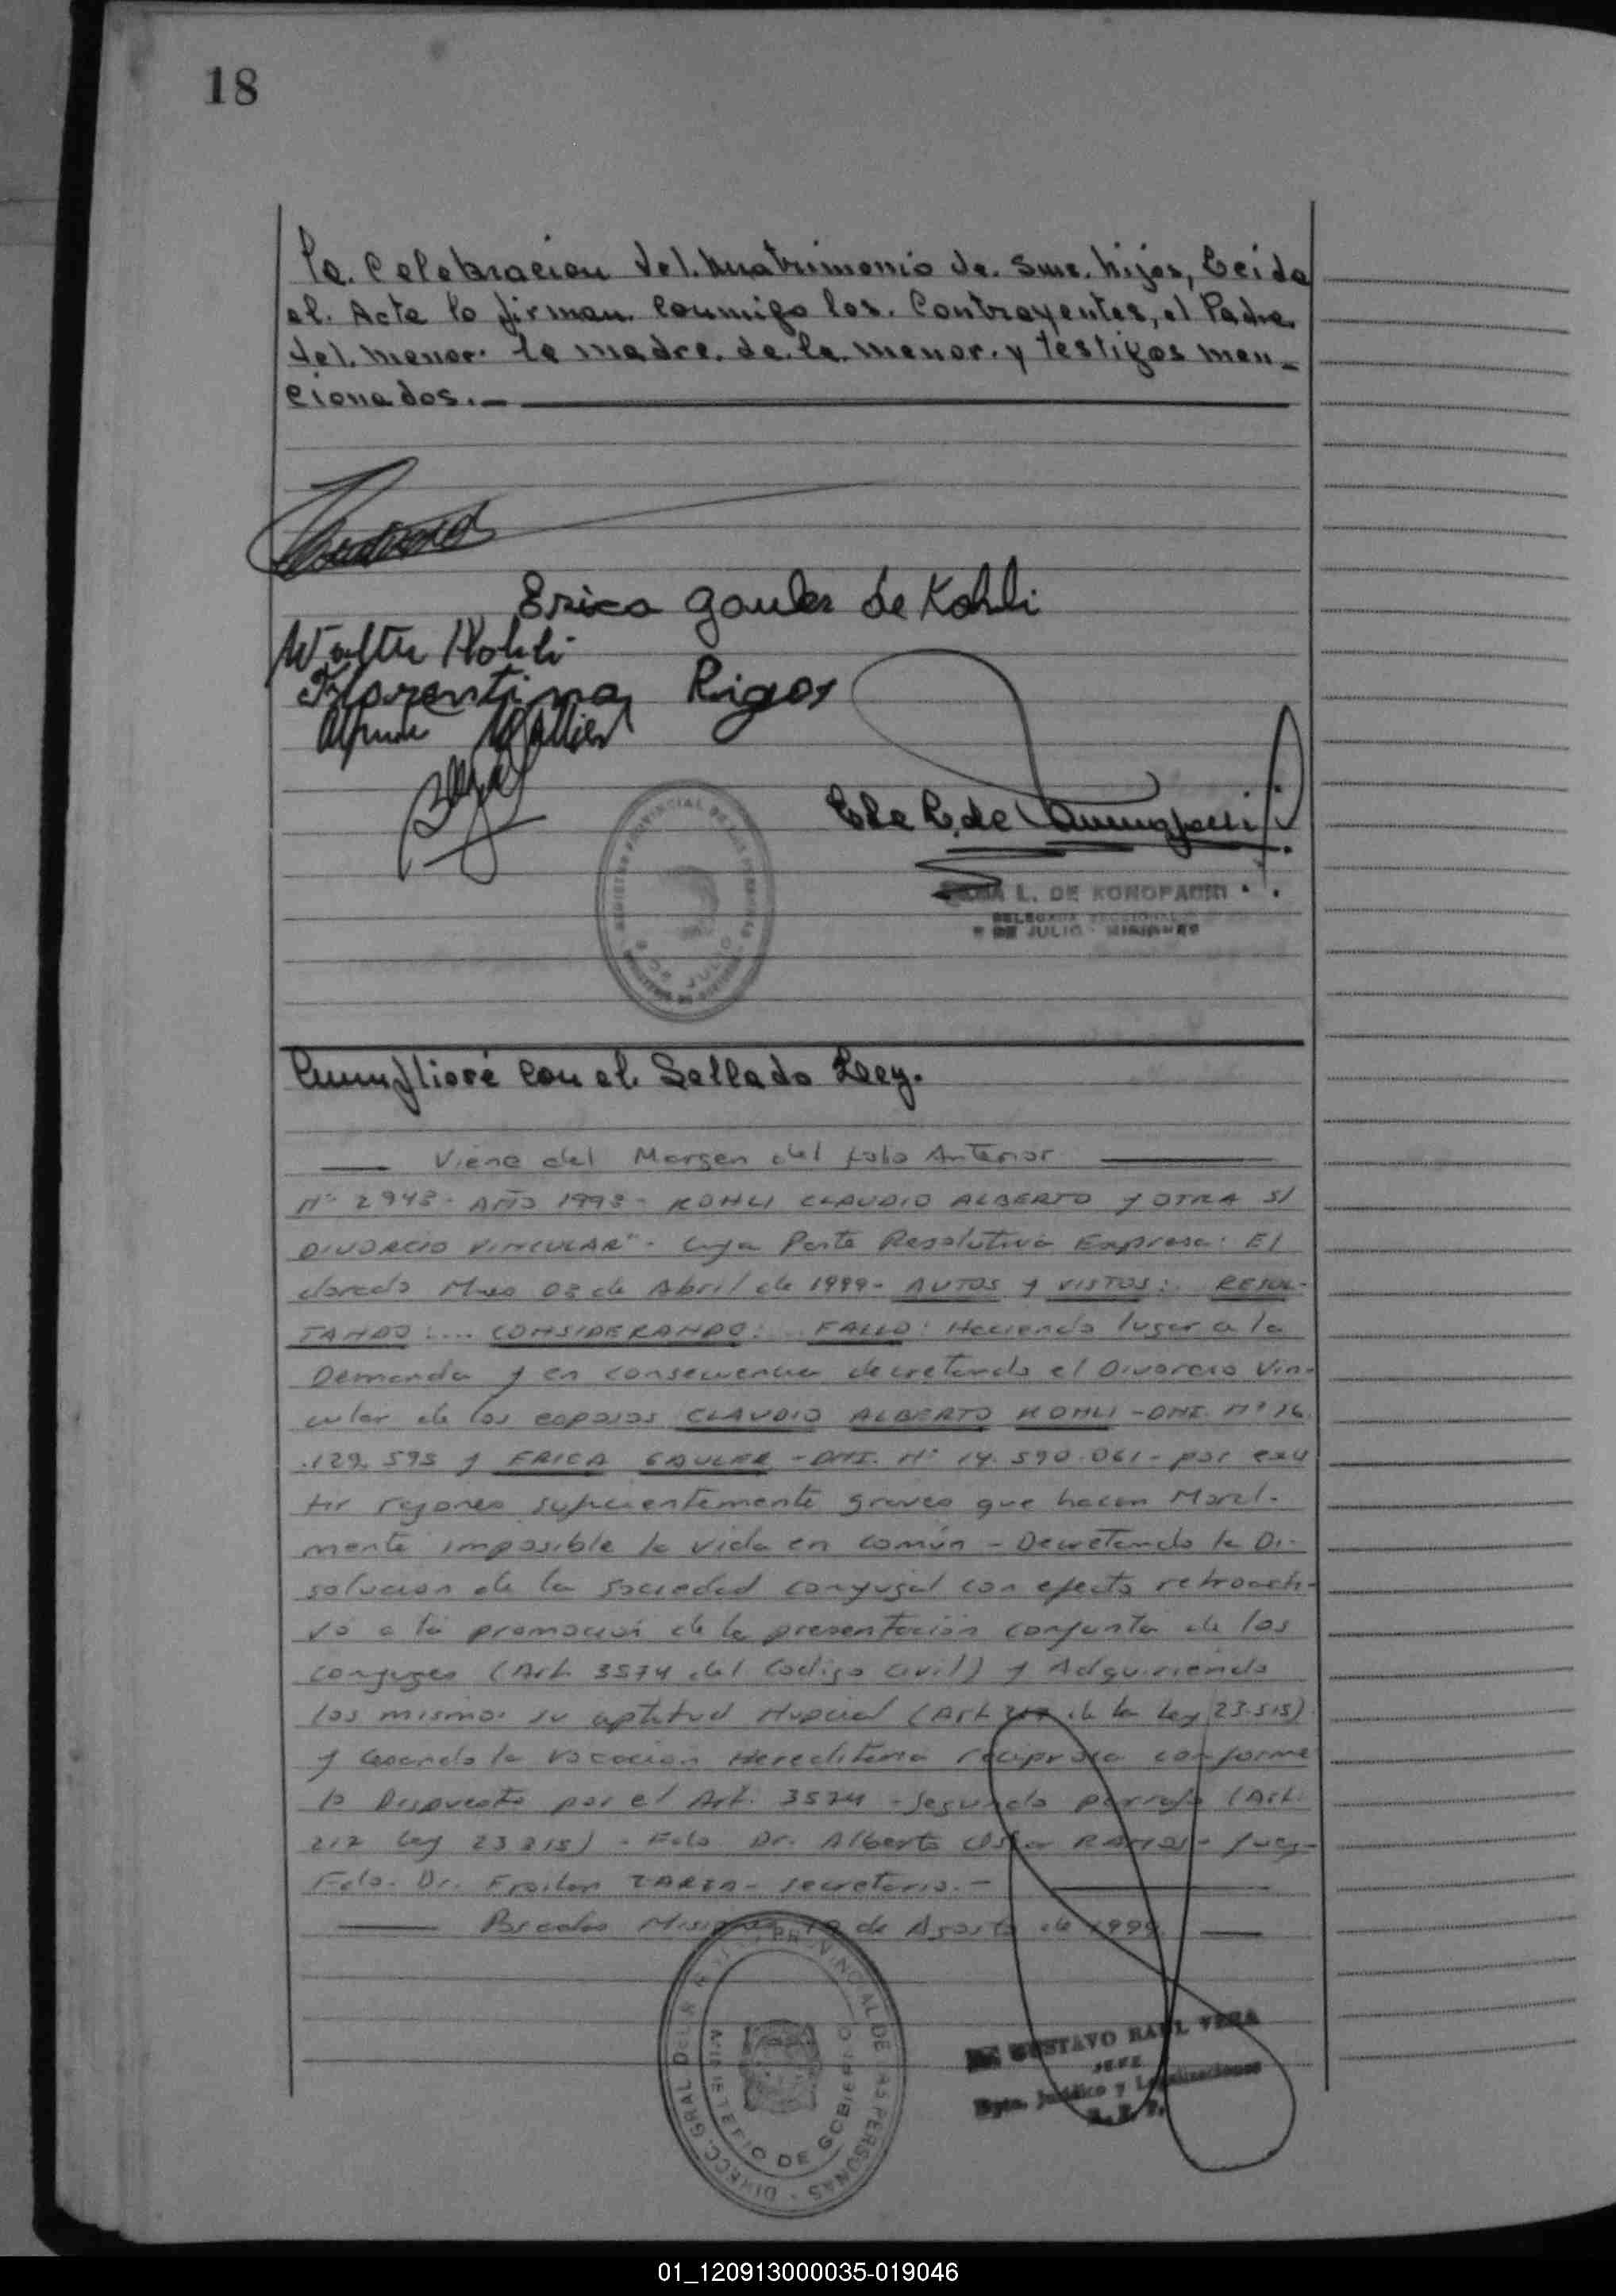 18
la. Celebracion del. Matrimonio de. sus. hijos, Leida
el. Acta lo firman. conmigo los. Contrayentes, el Padre
del. menor. la madre. de. la. menor. y testigos men-
cionados.-
Erica Gauler de Kohli
Walter Kohli
Florentina Rigos
L. DE KONOPACKI
DELEGADA SECCIONAL
9 DE JULIO - MISIONES
REGISTRO PROVINCIAL DE LAS PERSONAS
9 DE JULIO
con el. Sellado Ley.
Viene del Margen del folio Anterior
Nº 2943- AÑO 1993- KOHLI CLAUDIO ALBERTO y OTRA S/
DIVORCIO VINCULAR"- Cuya Parte Resolutiva Expresa: El
dorado Mnes 08 de Abril de 1999- AUTOS y VISTOS:. RESUL-
TANDO:... CONSIDERANDO:.. FALLO: Haciendo lugar a la
Demanda y en consecuencia decretando el Divorcio Vin-
cular de los esposos CLAUDIO ALBERTO KOHLI -DNI. Nº 16
.129.595 y ERICA GAULER -DNI. Nº 14.590.061- por exis
tir razones suficientemente graves que hacen Moral-
mente imposible la vida en común - Decretando la Di-
solucion de la sociedad conyugal con efecto retroacti-
vo a la promocion de la presentación conjunta de los
conyuges (Art. 3574 del Codigo Civil) y Adquiriendo
los mismos su aptitud Nupcial (Art 217 de la Ley 23.515)
y Cesando la vocacion Hereditaria reciproca conforme
lo Dispuesto por el Art. 3574 -Segundo parrafo (Art.
217 Ley 23515) - Fdo Dr. Alberto Oscar RAMOS- Juez-
Fdo. Dr. Froilan ZARZA- secretario.-
Posadas Misiones 19 de Agosto de 1999
DIRECC. GRAL DEL R PROVINCIAL DE LAS PERSONAS
MINISTERIO DE GOBIERNO
GUSTAVO RAUL VERA
JEFE
Dpto. Jurídico y Legalizaciones
R. P. P.
01_120913000035-019046